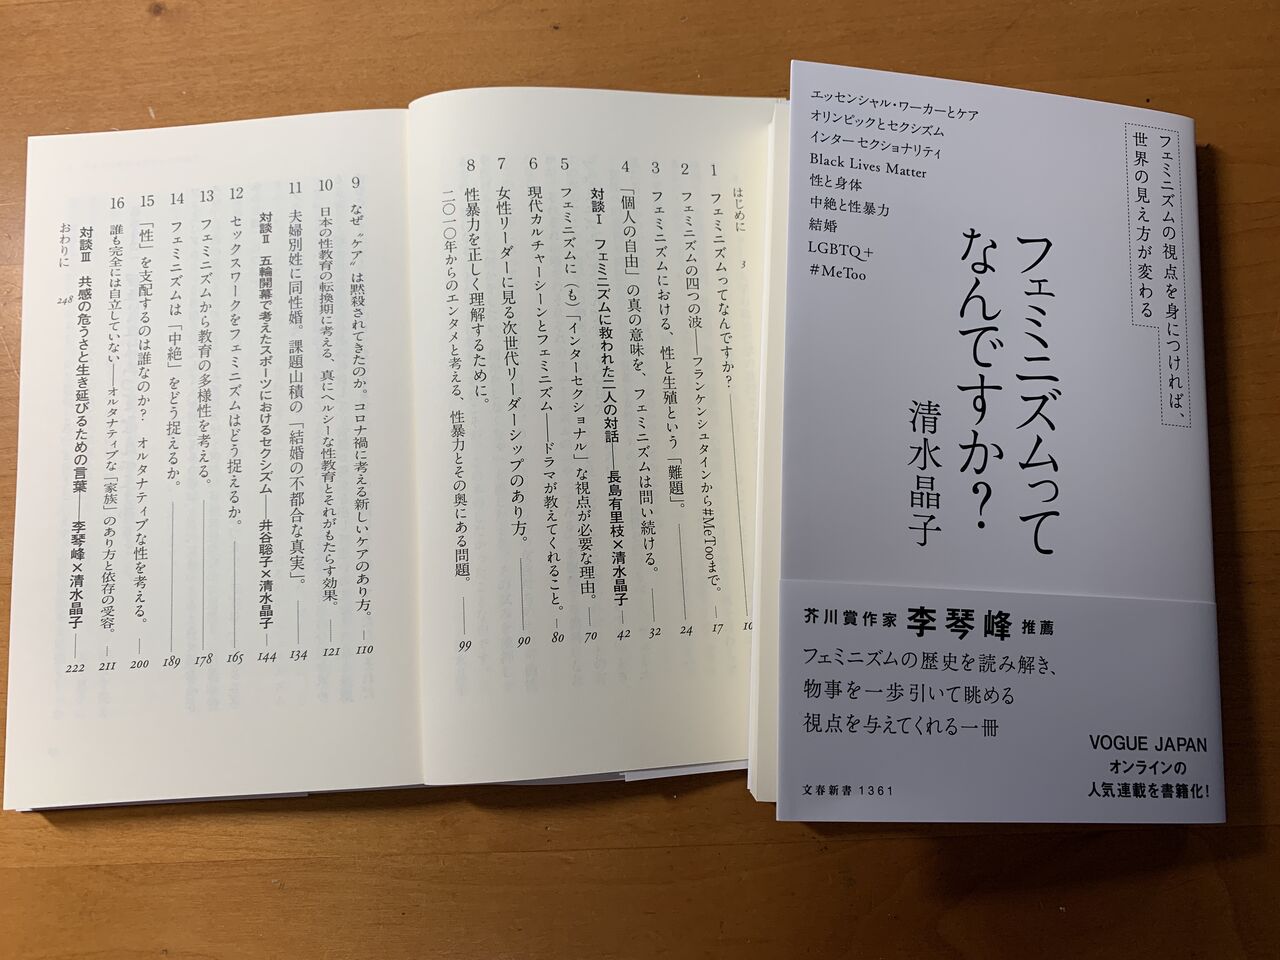 エッセンシャル・ワーカーとケア
オリンピックとセクシズム
インターセクショナリティ
Black Lives Matter
性と身体
中絶と性暴力
結婚
LGBTQ+
#MeToo
フェミニズムの視点を身につければ、
世界の見え方が変わる
フェミニズムって
なんですか?
清水晶子
芥川賞作家 李琴峰 推薦
フェミニズムの歴史を読み解き、
物事を一歩引いて眺める
視点を与えてくれる一冊
VOGUE JAPAN
オンラインの
人気連載を書籍化!
文春新書 1361
はじめに 3
1 フェミニズムってなんですか? 10
2 フェミニズムの四つの波——フランケンシュタインから#MeTooまで。 17
3 フェミニズムにおける、性と生殖という「難題」。 24
4 「個人の自由」の真の意味を、フェミニズムは問い続ける。 32
対談Ⅰ フェミニズムに救われた二人の対話——長島有里枝×清水晶子 42
5 フェミニズムに(も)「インターセクショナル」な視点が必要な理由。 70
6 現代カルチャーシーンとフェミニズム——ドラマが教えてくれること。 80
7 女性リーダーに見る次世代リーダーシップのあり方。 90
8 性暴力を正しく理解するために。
二〇一〇年からのエンタメと考える、性暴力とその奥にある問題。 99
9 なぜ“ケア”は黙殺されてきたのか。コロナ禍に考える新しいケアのあり方。 110
10 日本の性教育の転換期に考える、真にヘルシーな性教育とそれがもたらす効果。 121
11 夫婦別姓に同性婚。課題山積の「結婚の不都合な真実」。 134
対談Ⅱ 五輪開幕で考えたスポーツにおけるセクシズム——井谷聡子×清水晶子 144
12 セックスワークをフェミニズムはどう捉えるか。 165
13 フェミニズムから教育の多様性を考える。 178
14 フェミニズムは「中絶」をどう捉えるか。 189
15 「性」を支配するのは誰なのか? オルタナティブな性を考える。 200
16 誰も完全には自立していない——オルタナティブな「家族」のあり方と依存の受容。 211
対談Ⅲ 共感の危うさと生き延びるための言葉——李琴峰×清水晶子 222
おわりに 248